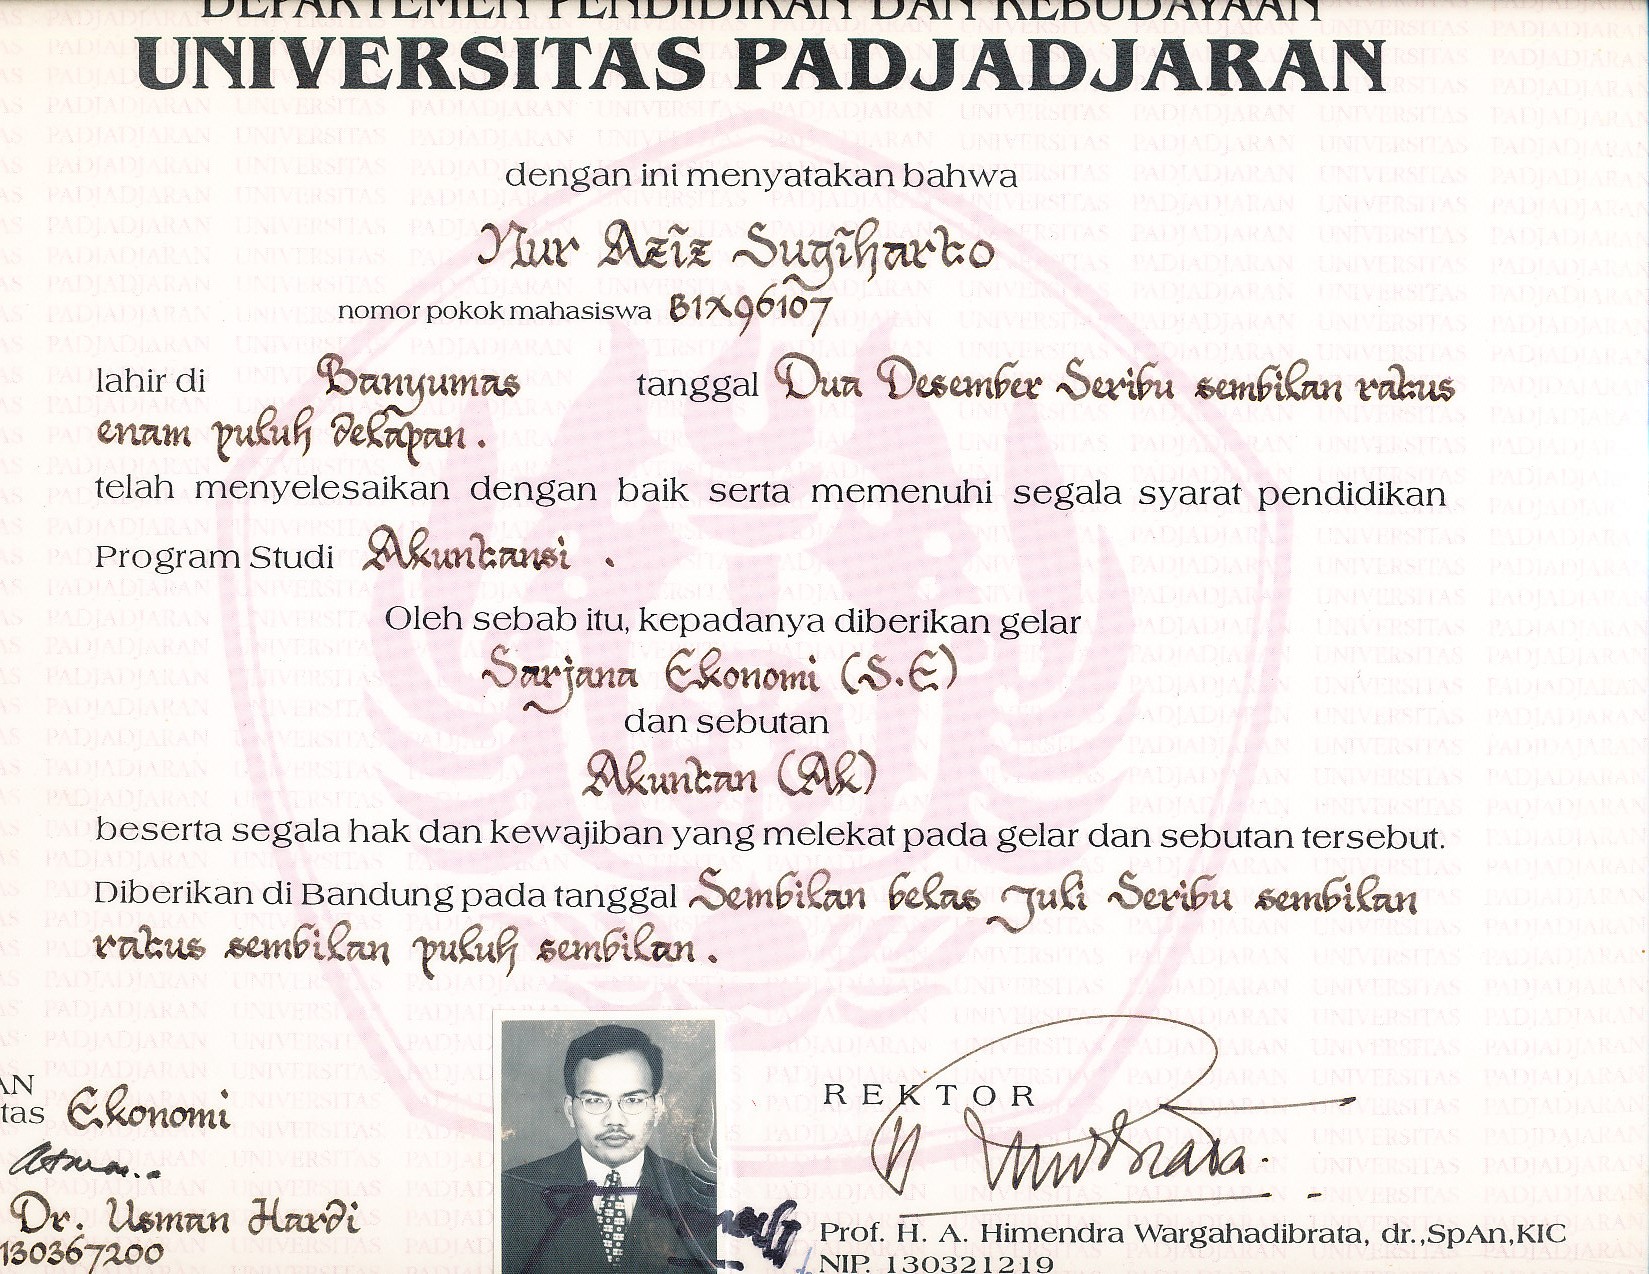 DEPARTEMEN PENDIDIKAN DAN KEBUDAYAAN
UNIVERSITAS PADJADJARAN
dengan ini menyatakan bahwa
Nur Aziz Sugiharto
nomor pokok mahasiswa B1X96107
lahir di Banyumas tanggal Dua Desember Seribu sembilan ratus
enam puluh delapan.
telah menyelesaikan dengan baik serta memenuhi segala syarat pendidikan
Program Studi Akuntansi .
Oleh sebab itu, kepadanya diberikan gelar
Sarjana Ekonomi (S.E)
dan sebutan
Akuntan (Ak)
beserta segala hak dan kewajiban yang melekat pada gelar dan sebutan tersebut.
Diberikan di Bandung pada tanggal Sembilan belas Juli Seribu sembilan
ratus sembilan puluh sembilan.
AN
tas Ekonomi
Dr. Usman Hardi
130367200
REKTOR
Prof. H. A. Himendra Wargahadibrata, dr.,SpAn,KIC
NIP. 130321219